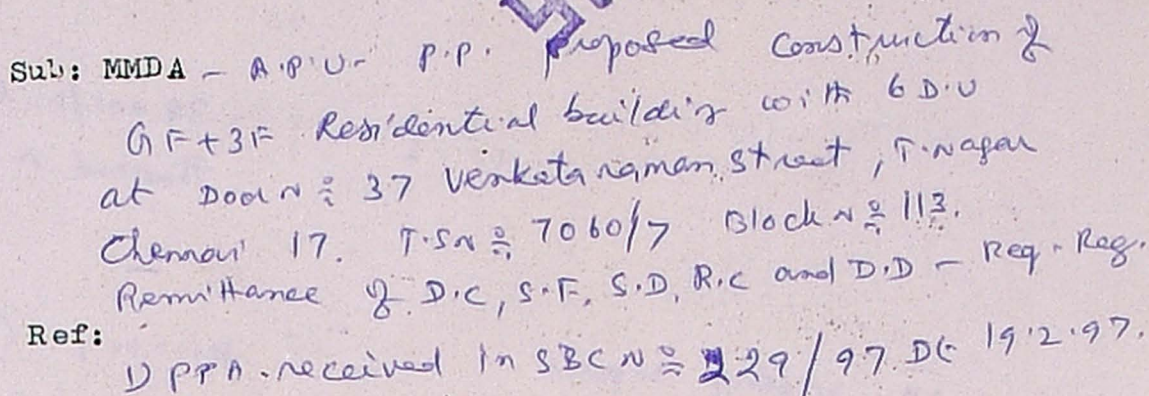 Sub: MMDA - A.P.U- P.P. Proposed Construction of
GF+3F Residential building with 6 D.U
at Door No: 37 Venkataraman street, T.Nagar
Chennai 17. T.S No: 7060/7 Block No: 113.
Remittance of D.C, S.F, S.D, R.C and D.D - Req - Reg.
Ref:
1) PPA received in SBC No: 229/97 Dt 19.2.97.